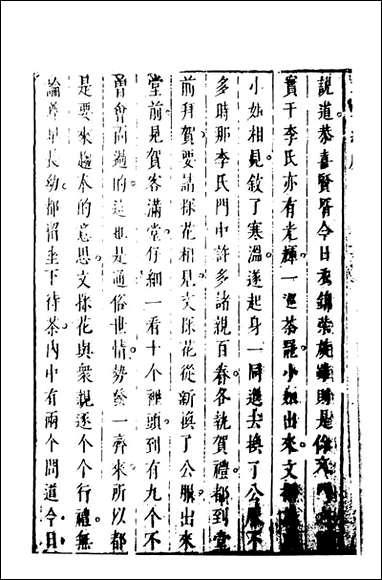 說道恭喜賢壻今日衣錦榮旋雖則是你
實于李氏亦有光輝一巡茶罷小姐出來文
小姐相見敘了寒溫遂起身一同進去換了公服不
多時那李氏門中許多諸親百眷各執賀禮都到堂
前拜賀要請探花相見文探花從新換了公服出來
堂前見賀客滿堂仔細一看十个裡頭到有九个不
曾會面過的這也是通俗世情勢敗一齊來所以都
是要來趨奉的意思文探花與衆親逐个个行禮無
論尊卑長幼都留坐下待茶內中有兩个問道今日